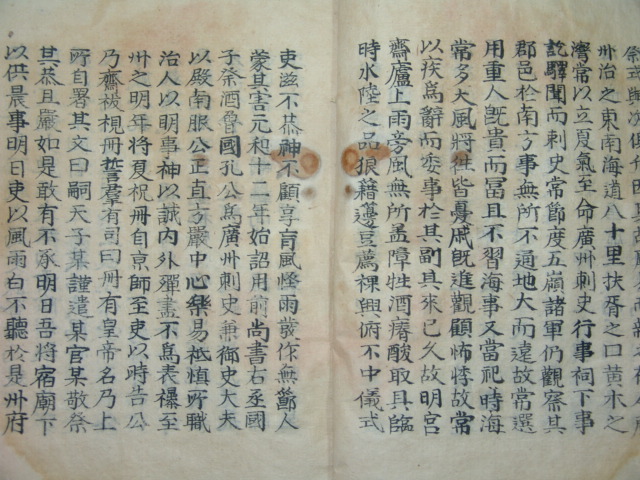 州治之東南海道八十里扶胥之口黃木之
灣常以立夏氣至命廣州刺史行事祠下事
訖驛聞而刺史常節度五嶺諸軍仍觀察其
郡邑於南方事無所不通地大而遠故常選
用重人既貴而冨且不習海事又當祀時海
常多大風將往皆憂戚既進觀顧怖悸故常
以疾爲辭而委事於其副其来已久故明宫
齋廬上雨旁風無所盖障牲酒瘠酸取具臨
時水陸之品狼籍籩豆薦祼興俯不中儀式
吏滋不恭神不顧享盲風怪雨發作無節人
蒙其害元和十二年始詔用前尚書右丞國
子祭酒魯國孔公爲廣州刺史兼御史大夫
以殿南服公正直方嚴中心樂易祗慎所職
治人以明事神以誠内外殫盡不爲表襮至
州之明年將夏祝册自京師至吏以時告公
乃齋祓視册誓羣有司曰册有皇帝名乃上
所自署其文曰嗣天子某謹遣某官某敬祭
其恭且嚴如是敢有不承明日吾將宿廟下
以供晨事明日吏以風雨白不聽於是州府